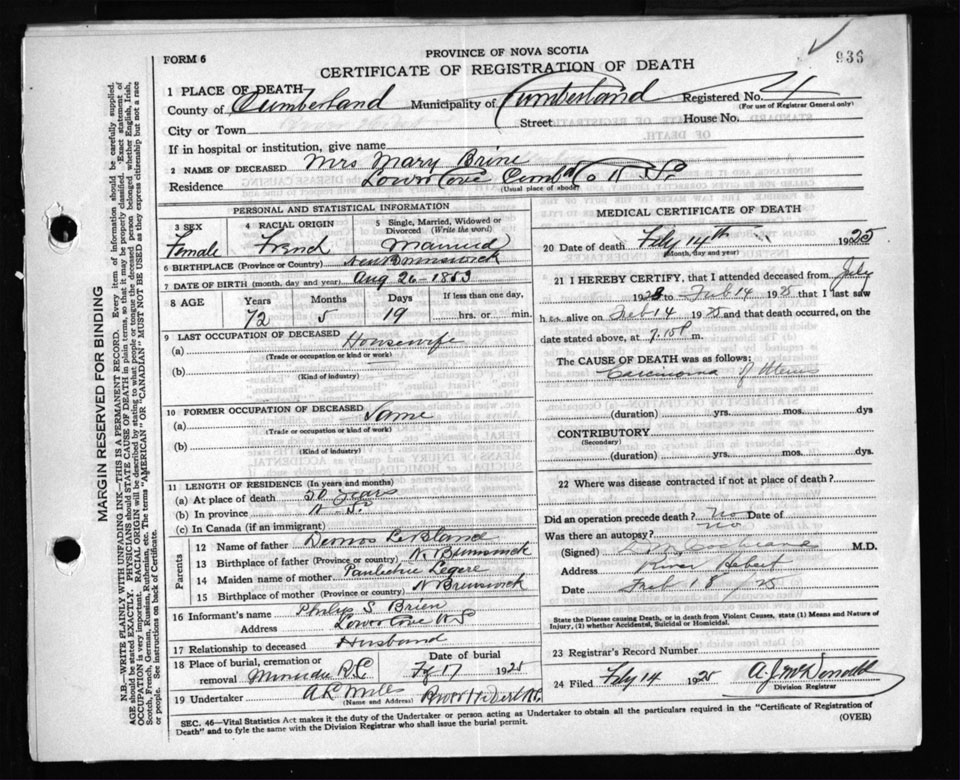 936
FORM 6
PROVINCE OF NOVA SCOTIA
CERTIFICATE OF REGISTRATION OF DEATH
1 PLACE OF DEATH
County of Cumberland Municipality of Cumberland Registered No. 4
(For use of Registrar General only)
City or Town Street House No.
If in hospital or institution, give name
2 NAME OF DECEASED Mrs Mary Brine
Residence Lower Cove Cumb Co N S
(Usual place of abode)
PERSONAL AND STATISTICAL INFORMATION
3 SEX Female
4 RACIAL ORIGIN French
5 Single, Married, Widowed or Divorced (Write the word) Married
6 BIRTHPLACE (Province or Country) New Brunswick
7 DATE OF BIRTH (month, day and year) Aug 26 - 1853
8 AGE Years Months Days If less than one day,
72 5 19 hrs. or min.
9 LAST OCCUPATION OF DECEASED
(a) Housewife
(Trade or occupation or kind or work)
(b)
(Kind of industry)
10 FORMER OCCUPATION OF DECEASED
(a) Same
(Trade or occupation or kind of work)
(b)
(Kind of industry)
11 LENGTH OF RESIDENCE (In years and months)
(a) At place of death 50 years
(b) In province N. S.
(c) In Canada (if an immigrant)
Parents
12 Name of father
13 Birthplace of father (Province or Country) N. Brunswick
14 Maiden name of mother Legere
15 Birthplace of mother (Province or Country) N Brunswick
16 Informant's name S Brien
Address Lower Cove N S
17 Relationship to deceased Husband
18 Place of burial, cremation or removal Minudie R.C. Date of burial 17 1925
19 Undertaker A R Miles River Hebert N.S.
(Name and Address)
MEDICAL CERTIFICATE OF DEATH
20 Date of death Feby 14th 1925
(Month, day and year)
21 I HEREBY CERTIFY, that I attended deceased from July
192 to Feb 14 1925 that I last saw
h alive on Feb 14 1925 and that death occurred, on the
date stated above, at 7.15 P m.
The CAUSE OF DEATH was as follows:
Carcinoma of Uterus
(duration) yrs. mos. dys
CONTRIBUTORY
(Secondary)
(duration) yrs. mos. dys.
22 Where was disease contracted if not at place of death?
Did an operation precede death? No Date of
Was there an autopsy? no
(Signed) Cochrane M.D.
Address River Hebert
Date Feb 18 / 25
State the Disease causing Death, or in death from Violent Causes, state (1) Means and Nature of Injury, (2) whether Accidental, Suicidal or Homicidal.
23 Registrar's Record Number
24 Filed Feby 14 1925 A. J. McDonald
Division Registrar
SEC. 46—Vital Statistics Act makes it the duty of the Undertaker or person acting as Undertaker to obtain all the particulars required in the "Certificate of Registration of
Death" and to fyle the same with the Division Registrar who shall issue the burial permit.
(OVER)
MARGIN RESERVED FOR BINDING
N.B.—WRITE PLAINLY WITH UNFADING INK—THIS IS A PERMANENT RECORD. Every item of information should be carefully supplied.
AGE should be stated EXACTLY. PHYSICIANS should STATE CAUSE OF DEATH in plain terms, so that it may be properly classified. Exact statement of
OCCUPATION is very important. RACIAL ORIGIN will be described by stating to what people or tongue the deceased person belonged whether English, Irish,
Scotch, French, German, Russian, Ruthenian, etc. The terms "AMERICAN" or "CANADIAN" MUST NOT BE USED as they express citizenship but not a race
or people. See instructions on back of Certificate.